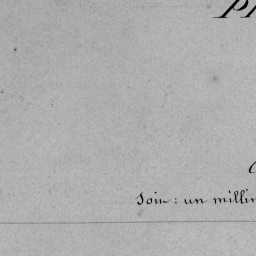 Pl
Soit : un milli